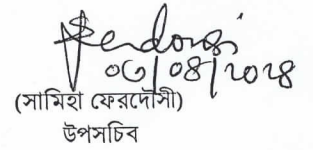 ০৩/০৪/২০২৪
(সামিহা ফেরদৌসী)
উপসচিব